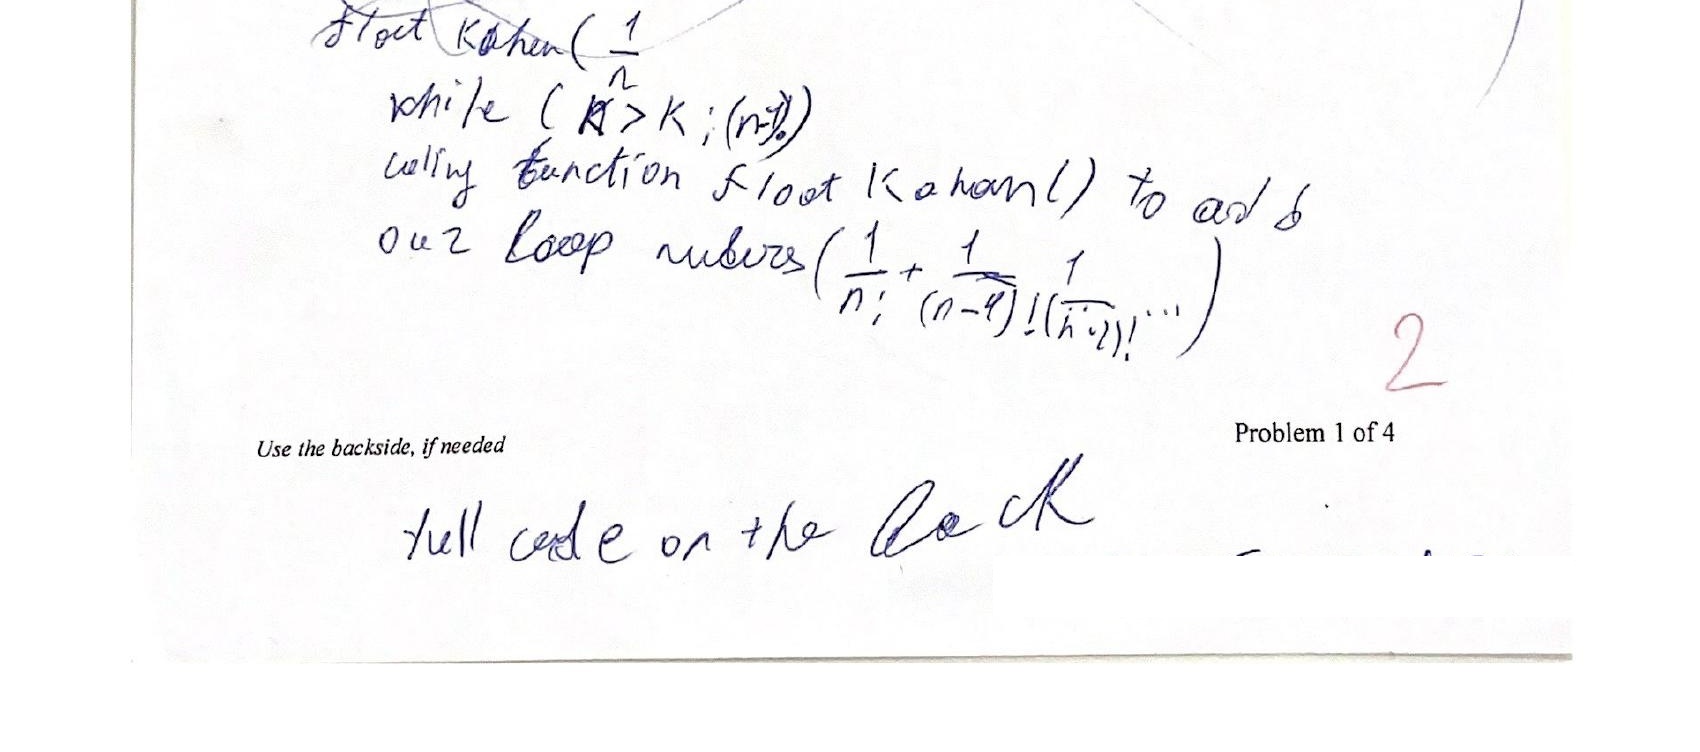 float Kahan( 1/n
while ( n > K ; (n-1)!)
calling function float Kahan() to add
our loop nubers ( 1/n! + 1/(n-1)! 1/(n-2)! ... )
2
Problem 1 of 4
Use the backside, if needed
full code on the back